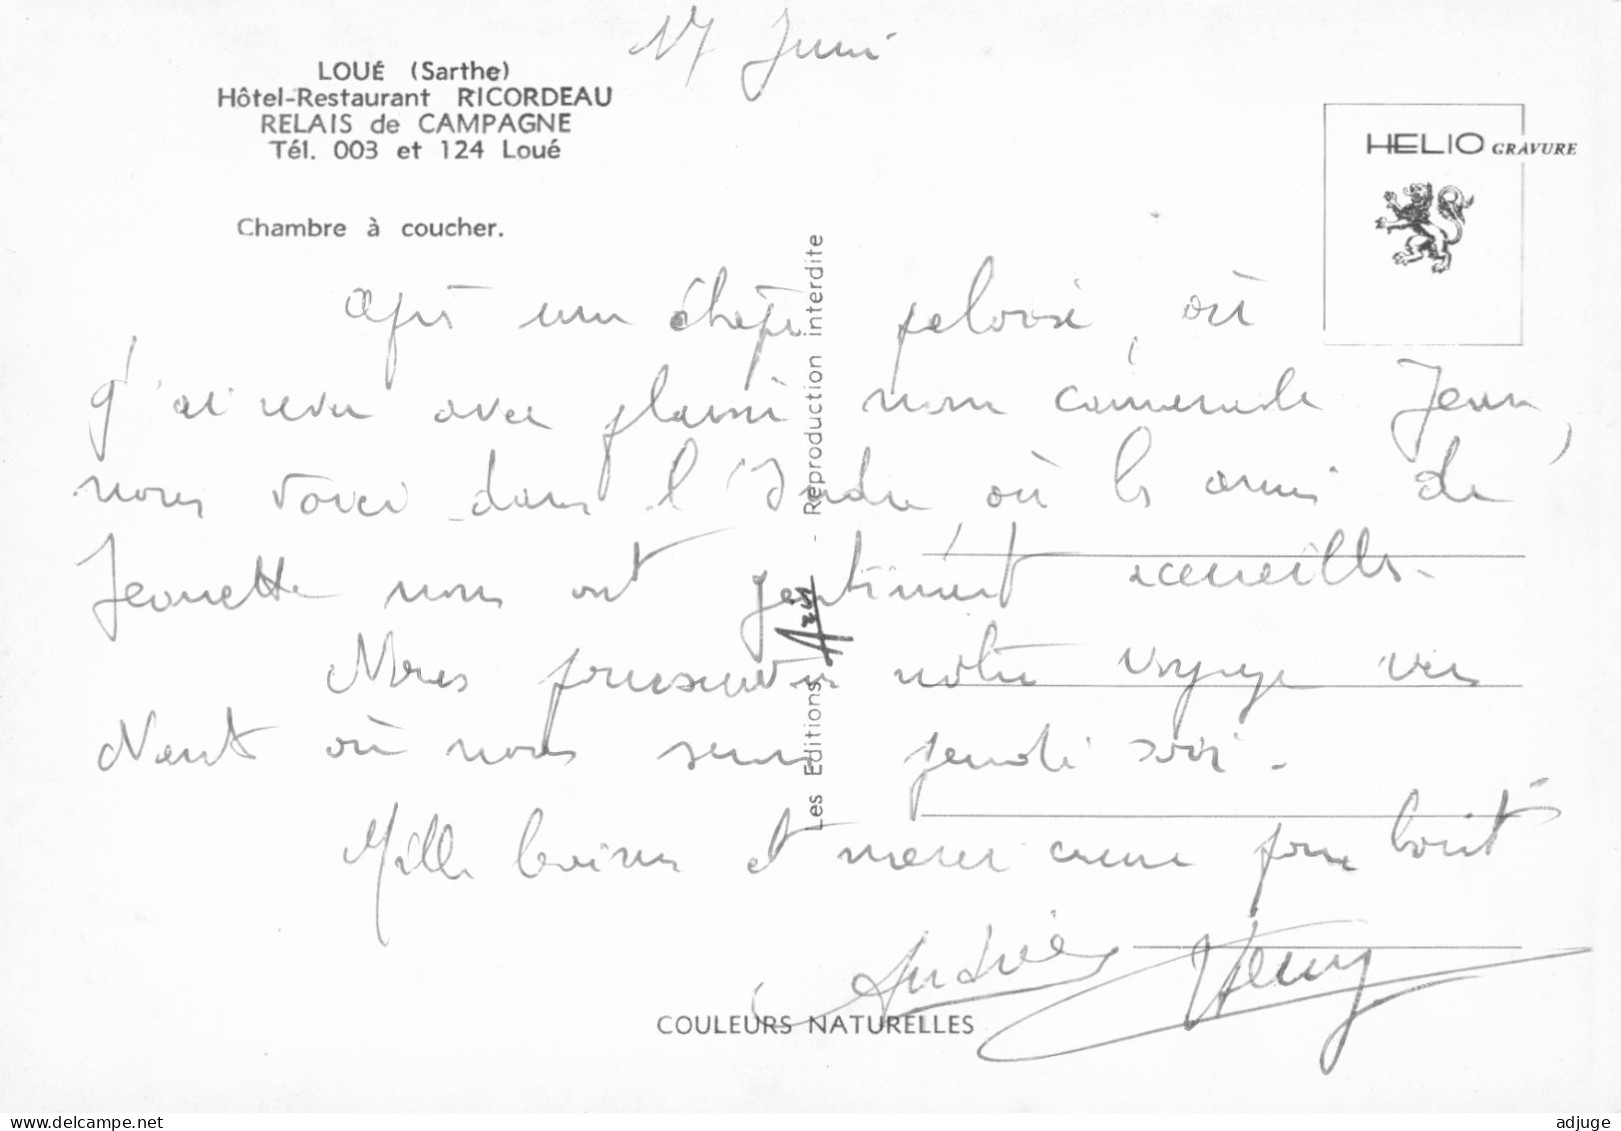 17 Juin
LOUÉ (Sarthe)
Hôtel-Restaurant RICORDEAU
RELAIS de CAMPAGNE
Tél. 003 et 124 Loué
HELIO GRAVURE
Chambre à coucher.
Après un , où
j'ai revu avec plaisir mon camarade Jean,
nous voici dans l'Indre où les amis de
Jeannette nous ont gentiment accueillis.
Nous poursuivons notre voyage vers
où nous serons jeudi soir.
Mille baisers et merci encore pour tout
Andrée Henry
Les Editions Arts - Reproduction interdite
COULEURS NATURELLES
adjuge
www.delcampe.net